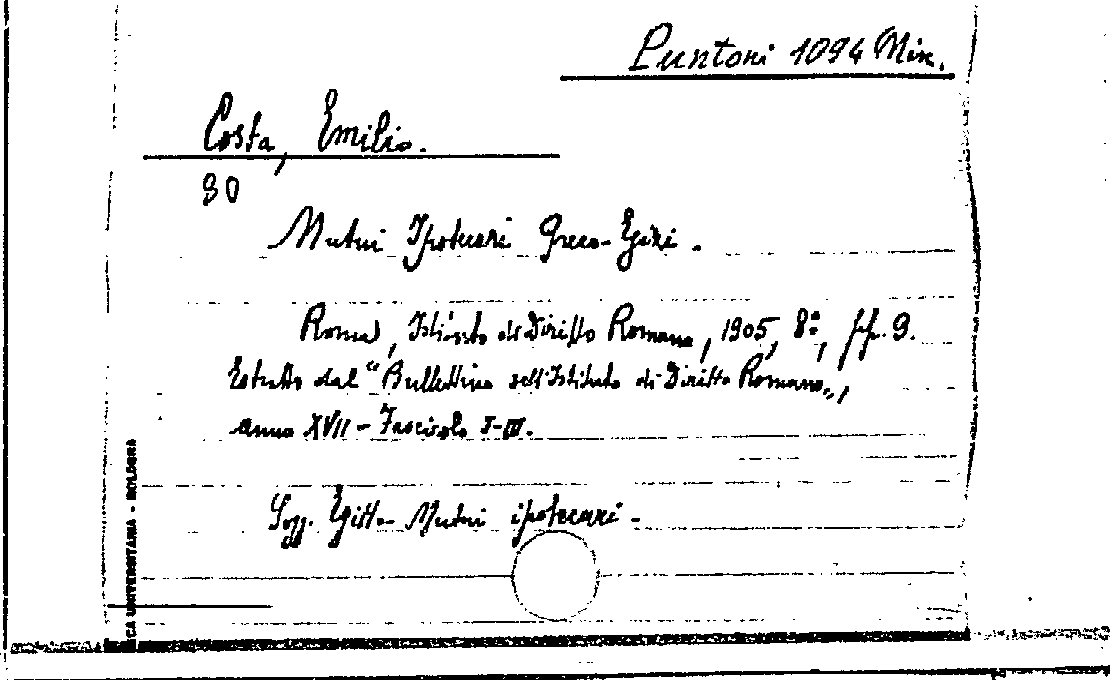 Puntoni 1094 Min.
Costa, Emilio.
80
Mutui Ipotecari Greco-Egizi.
Roma, Istituto di Diritto Romano, 1905, 8º, pp. 9.
Estratto dal "Bullettino dell'Istituto di Diritto Romano",
anno XVII - Fascicolo I-III.
Sogg. Egitto - Mutui ipotecari -
CA UNIVERSITARIA - BOLOGNA